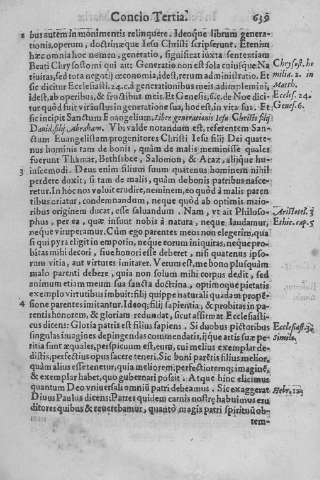 Concio Tertia. 639
2 bus autem in monimentis relinquere. Ideoque librum genera-
tionis, operum, doctrinæque Iesu Christi scripserunt. Etenim
hæc omnia hoc nomen, generatio, significat iuxta sententiam
Beati Chrysostomi qui ait: Generatio non est sola cuiusque Na
tiuitas, sed tota negotij œconomia, idest, rerum administratio. Et
sic dicitur Ecclesiasti. 24. à generationibus meis adimplemini,
idest, operibus, & fructibus meis. Et Genesis, 6. c. de Noe dici-
tur quòd fuit vir iustus in generatione sua, hoc est, in vita sua. Et
sic incipit Sanctum Euangelium. Liber generationis Iesu Christi filij
Dauid, filij, Abraham. Vbi valde notandum est, referentem San-
ctum Euangelistam progenitores Christi Iesu filij Dei quate-
nus hominis tam de bonis, quàm de malis meminisse quales
fuerunt Thamar, Bethsabee, Salomon, & Acaz, alijque hu-
3 iuscemodi. Deus enim filium suum quatenus hominem nihil
perdere doxit, si tam de malis, quàm debonis patribus nasce-
retur. In hoc nos voluit erudire, neminem, eo quòd à malis paren
tibus oriatur, condemnandum, neque quòd ab optimis maio-
ribus originem ducat, esse laudandum. Nam, vt ait Philoso-
phus, per ea, quæ insunt nobis à natura, neque laudamur,
neque vituperamur. Cùm ego parentes meos non elegerim, quasi
si qui pyra eligit in emporio, neque eorum iniquitas, neque pro-
bitas mihi decori, siue honori esse deberet, nisi quatenus ipso-
rum vitia, aut virtutes imitarer. Verum est, me bono plusquàm
malo parenti debere, quia non solum mihi corpus dedit, sed
animum etiam meum sua sancta doctrina, optimoque pietatis
exemplo virtutibus imbuit: filij quippe naturali quadam prope
4 sione parentes imitantur. Ideoque filij sapientia, & probitas in pa-
rentis honorem, & gloriam redundat, sicut asserunt Ecclesiasti-
cus dicens: Gloria patris est filius sapiens. Si duobus pictoribus
singulas imagines depingendas commendatis, ijque artis suæ pe-
ritia sunt æquales, perspicuum est, eum, cui melius exemplar de-
distis, perfectius opus facere teneri. Sic boni patris filius melior,
quàm alius esse tenetur, quia meliorem, perfectioremque imaginem,
& exemplar habet, quo gubernari possit. Atque hinc elicimus
quantum Deo vniuersali omnium patri debeamus. Sic exaggerat
Diuus Paulus dicens: Patres quidem carnis nostræ habuimus eru
ditores quibus & reuerebamur, quantò magis patri spirituum ob-
tem-
Chrysost. ho
milia. 2. in
Matth.
Eccles. 24.
Genes. 6.
Aristotel. 3
Ethic. cap. 5
Ecclesiast. 30
Simile.
Hebr. 12.